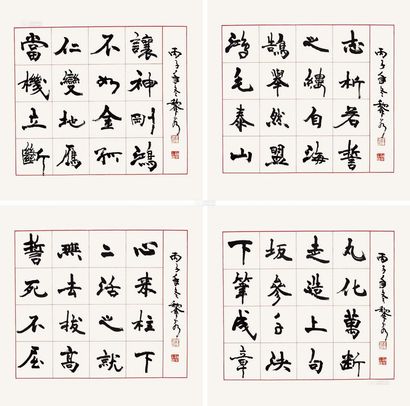 當仁不讓
機變如神
立地金剛
斷雁孤鴻
丙子年冬黎
鴻鵠之志
毛舉縷析
泰然自若
山盟海誓
丙子年冬黎
誓無二心
死去活來
不拔之柱
屈高就下
丙子年冬黎
下坂走丸
筆參造化
成千上萬
章決句斷
丙子年冬黎